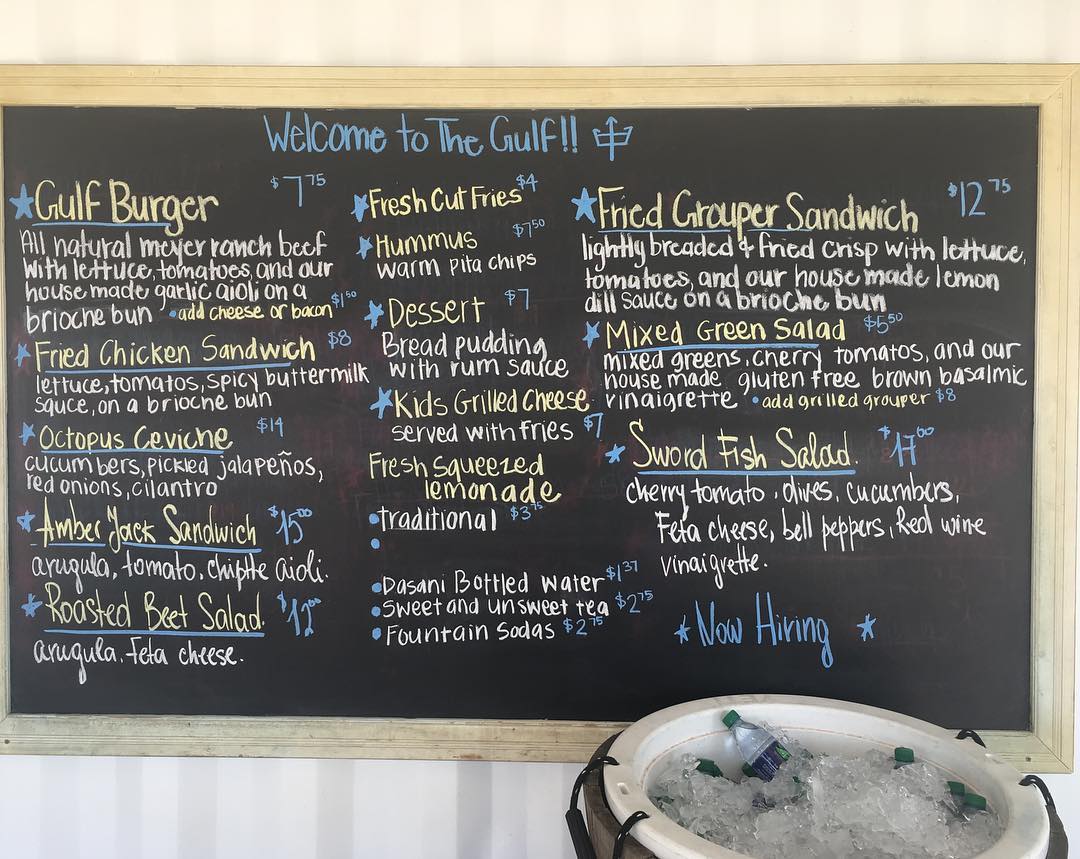 Welcome to The Gulf!!
Gulf Burger $7.75
All natural meyer ranch beef
with lettuce, tomatoes, and our
house made garlic aioli on a
brioche bun • add cheese or bacon $1.50
Fried Chicken Sandwich $8
lettuce, tomatos, spicy buttermilk
sauce, on a brioche bun
Octopus Ceviche $14
cucumbers, pickled jalapeños,
red onions, cilantro
Amber Jack Sandwich $15.00
arugula, tomato, chiptle aioli.
Roasted Beet Salad. $12.00
arugula. Feta cheese.
Fresh Cut Fries $4
Hummus $7.50
warm pita chips
Dessert $7
Bread pudding
with rum sauce
Kids Grilled Cheese
served with fries $7
Fresh Squeezed
lemonade
• traditional $3.75
•
• Dasani Bottled water $1.37
• Sweet and unsweet tea $2.75
• Fountain Sodas $2.75
Fried Grouper Sandwich $12.75
lightly breaded & fried crisp with lettuce,
tomatoes, and our house made lemon
dill sauce on a brioche bun
Mixed Green Salad $5.50
mixed greens, cherry tomatoes, and our
house made gluten free brown basalmic
vinaigrette • add grilled grouper $8
Sword Fish Salad. $17.00
cherry tomato, olives, cucumbers,
Feta cheese, bell peppers, Red wine
vinaigrette.
Now Hiring